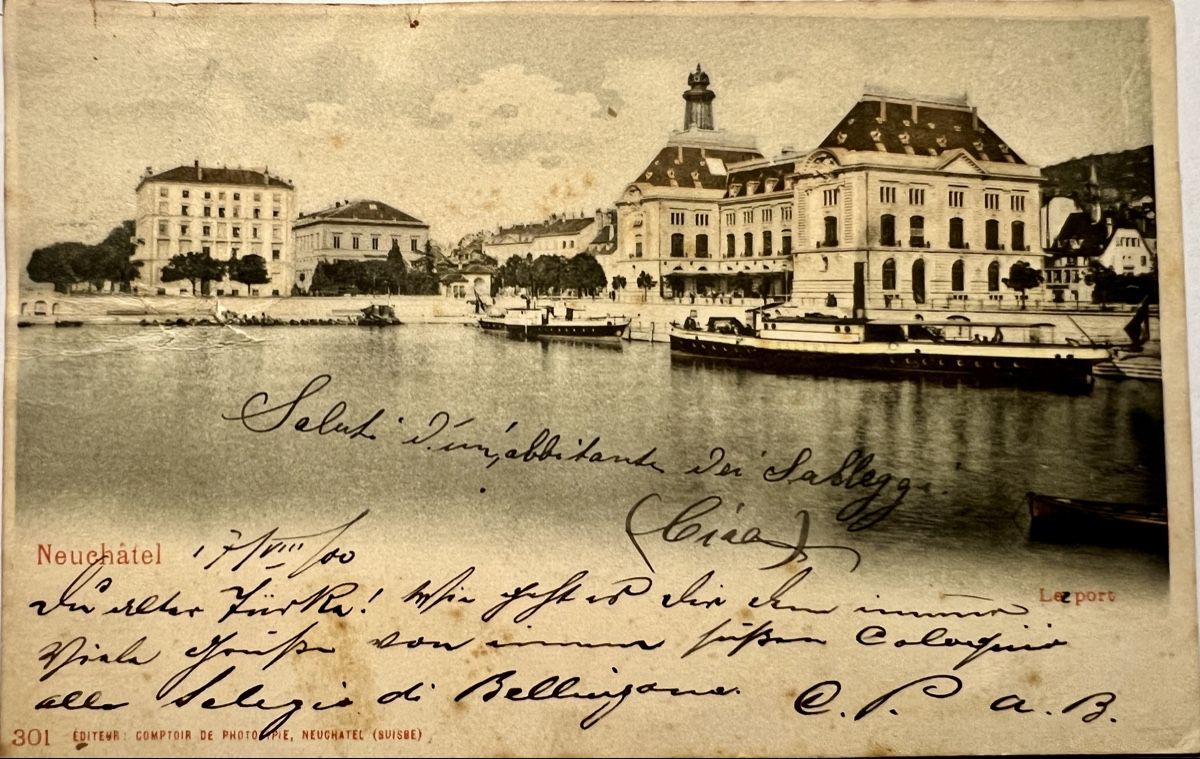 Saluti d'un'abbitante dei Sableggi.
(Ciao)
Neuchâtel 17/VIII/00
Le port
Du alter Türke! Wie geht es dir denn immer
Viele Grüße von einem süßen Coloquio
alle Selegie di Bellinzona. C. P. a. B.
301 ÉDITEUR: COMPTOIR DE PHOTOTYPIE, NEUCHATEL (SUISSE)